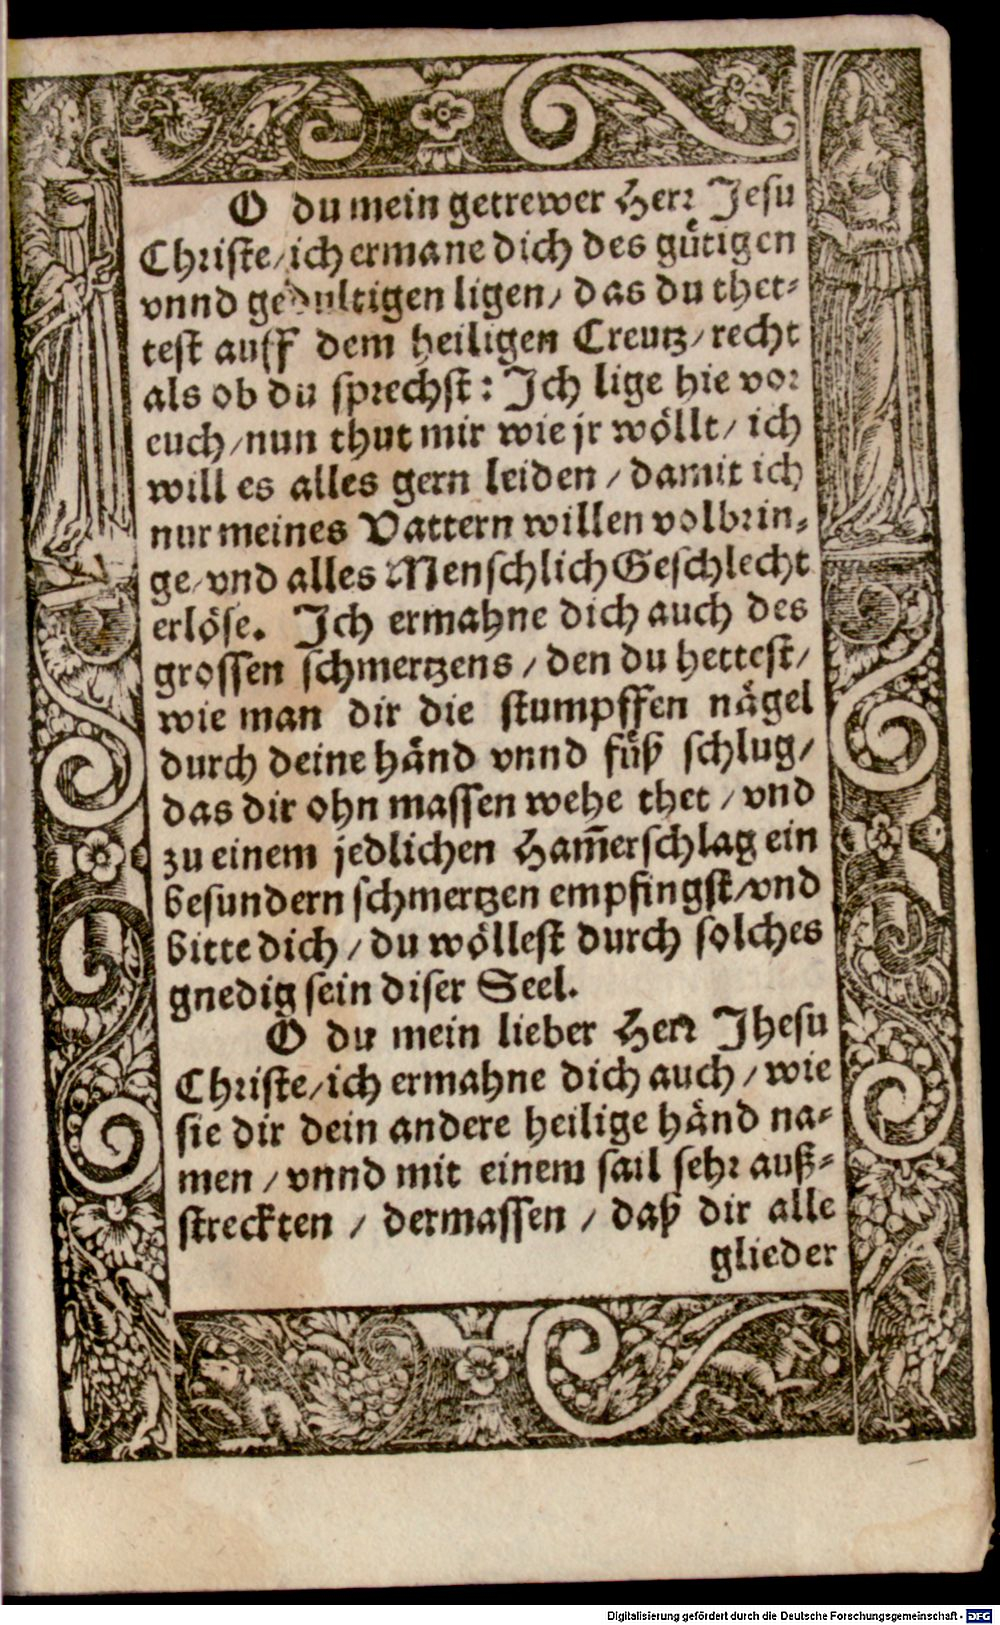 O du mein getrewer Herr Jesu
Christe/ ich ermane dich des gütigen
vnnd gedultigen ligen/ das du thet-
test auff dem heiligen Creutz/ recht
als ob du sprechst: Ich lige hie vor
euch/ nun thut mir wie jr wöllt/ ich
will es alles gern leiden/ damit ich
nur meines Vattern willen volbrin-
ge/ vnd alles Menschlich Geschlecht
erlöse. Ich ermahne dich auch des
grossen schmertzens/ den du hettest/
wie man dir die stumpffen nägel
durch deine händ vnnd füß schlug/
das dir ohn massen wehe thet/ vnd
zu einem jedlichen Ham̄erschlag ein
besundern schmertzen empfingst/ vnd
bitte dich/ du wöllest durch solches
gnedig sein diser Seel.
O du mein lieber Herr Jhesu
Christe/ ich ermahne dich auch/ wie
sie dir dein andere heilige händ na-
men/ vnnd mit einem sail sehr auß-
streckten/ dermassen/ daß dir alle
glieder
Digitalisierung gefördert durch die Deutsche Forschungsgemeinschaft - DFG